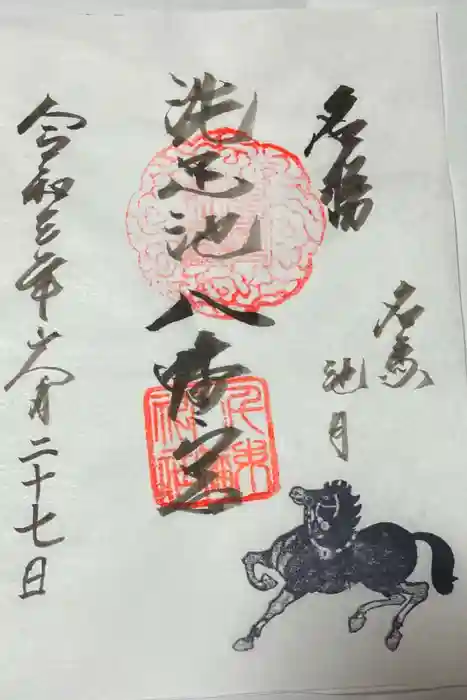 名勝
名馬
池月
洗足池
八幡宮
令和三年六月二十七日